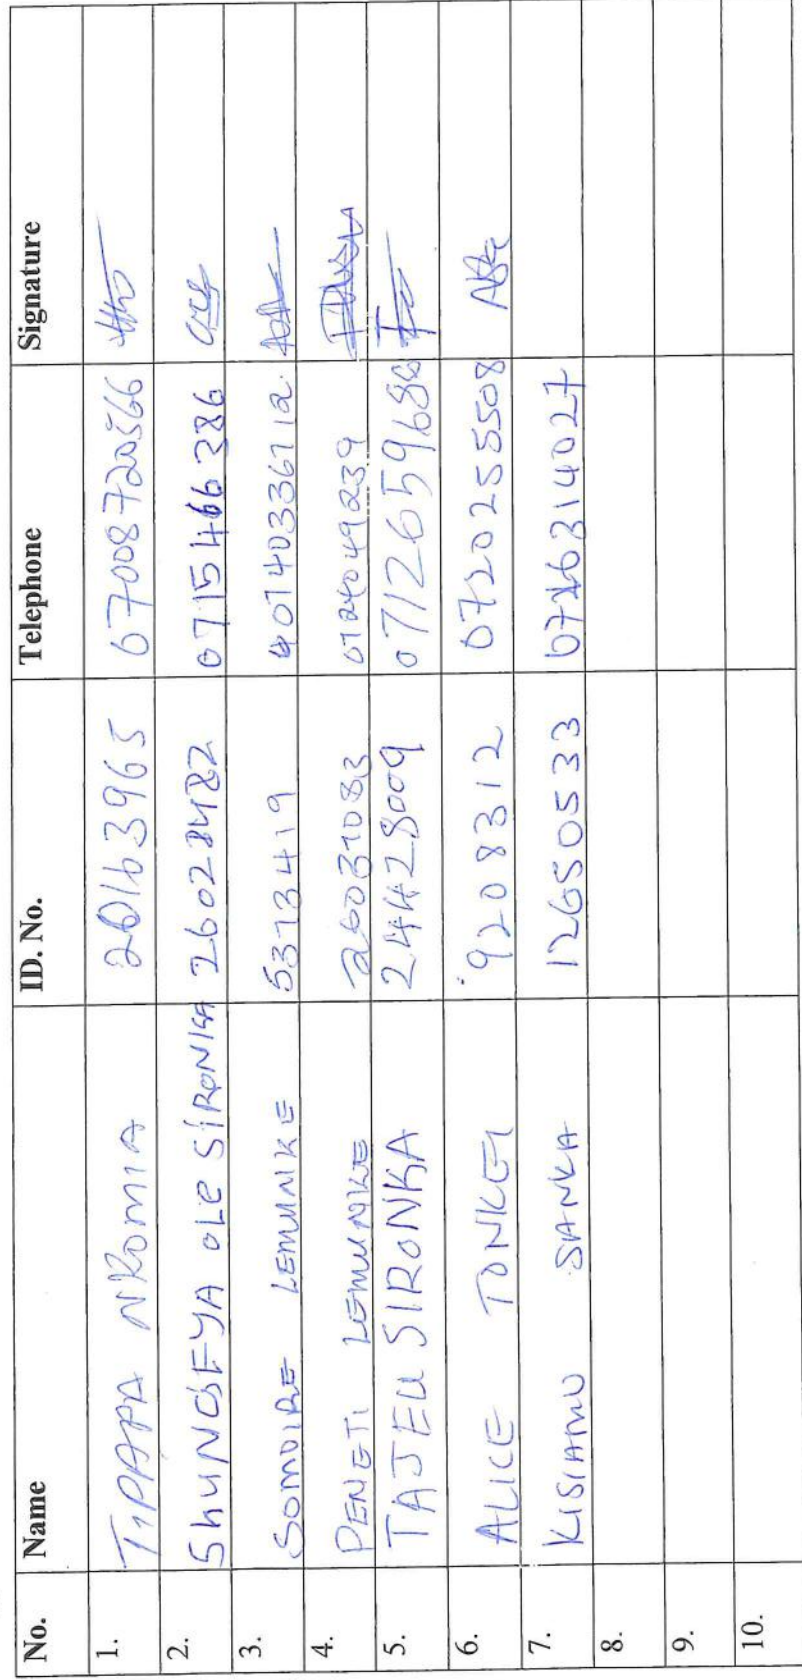 No. Name ID. No. Telephone Signature
1. TIPAPA NKOMIA 20163965
2. ShuNGEYA OLE SIRONKA 26028482 0715466386
3. SOMOIRE LEMUNKE 5373419
4. PENETI LEMUNKE 26031083
5. TAJEU SIRONKA 24428009 0712659680
6. ALICE TONKEI 9208312 0720255508
7. KISIAMU SANKA 12650533 0726314027
8.
9.
10.